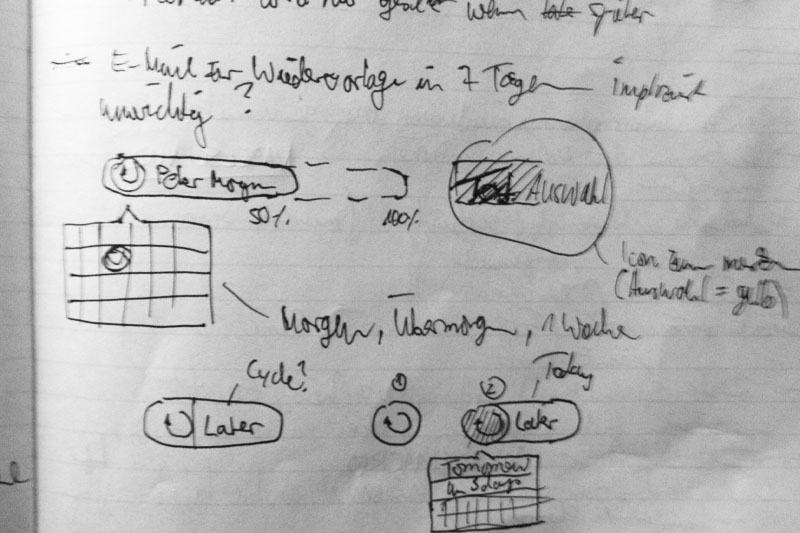 wenn später
E-Mail zur Wiedervorlage in 7 Tagen implizit
unwichtig?
Peter Morgen
50% 100%
Auswahl
Icon zum
(Auswahl = gelb)
Morgen, Übermorgen, 1 Woche
Cycle? 1 2 Today
Later Later
Tomorrow
in 3 days